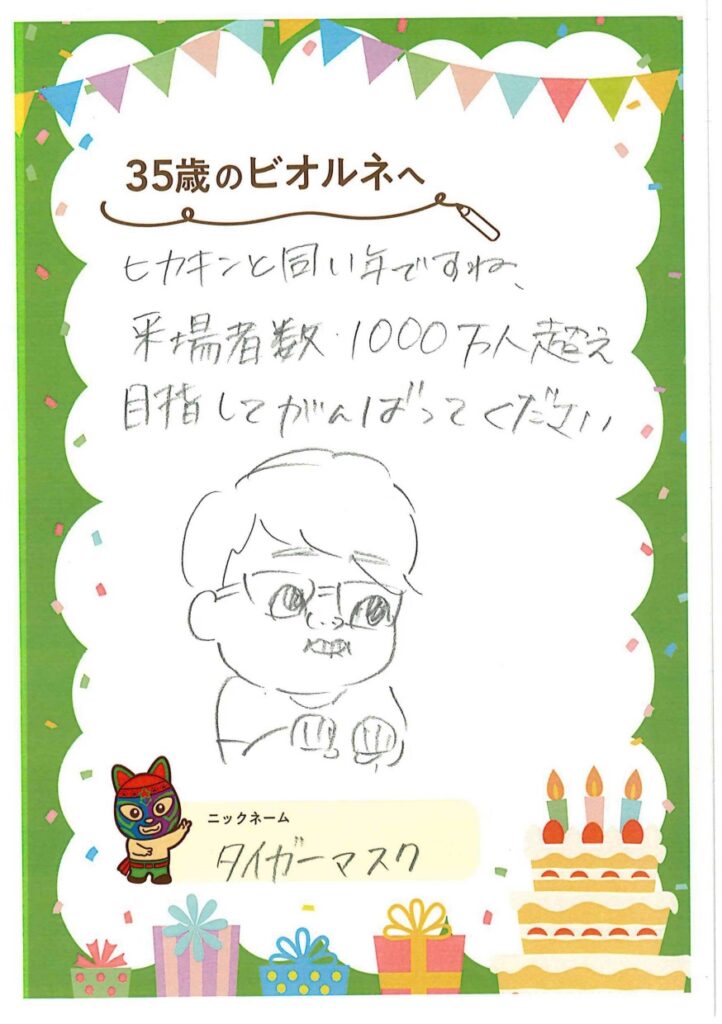 35歳のビオルネへ
ヒカキンと同い年ですね、
来場者数・1000万人超え
目指してがんばってください
ニックネーム
タイガーマスク